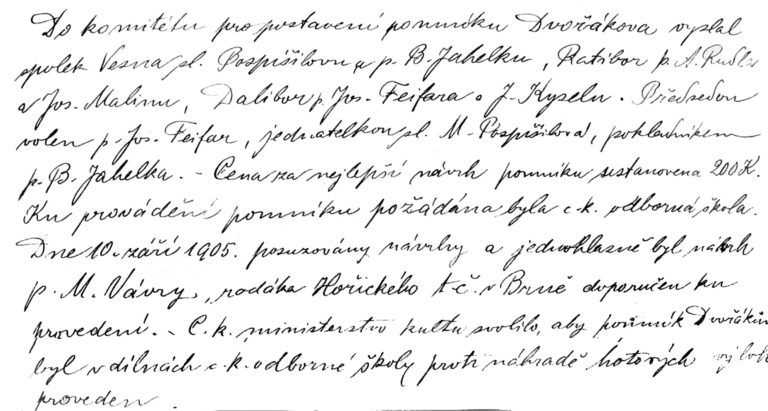 Do komitétu pro postavení pomníku Dvořákova vyslal
spolek Vesna sl. Pospíšilovu a p. B. Jahelku, Ratibor p. A. Rudla
a Jos. Malinu, Dalibor p. Jos. Feifara a J. Kyselu. Předsedou
volen p. Jos. Feifar, jednatelkou sl. M. Pospíšilová, pokladníkem
p. B. Jahelka. – Cena za nejlepší návrh pomníku sestanovena 200 K.
Ku provádění pomníku požádána byla c. k. odborná škola.
Dne 10. září 1905. posuzovány návrhy a jednohlasně byl návrh
p. M. Vávry, rodáka Hořického t. č. v Brně doporučen ku
provedení. – C. k. ministerstvo kultu svolilo, aby pomník Dvořákův
byl v dílnách c. k. odborné školy proti náhradě hotových
proveden.